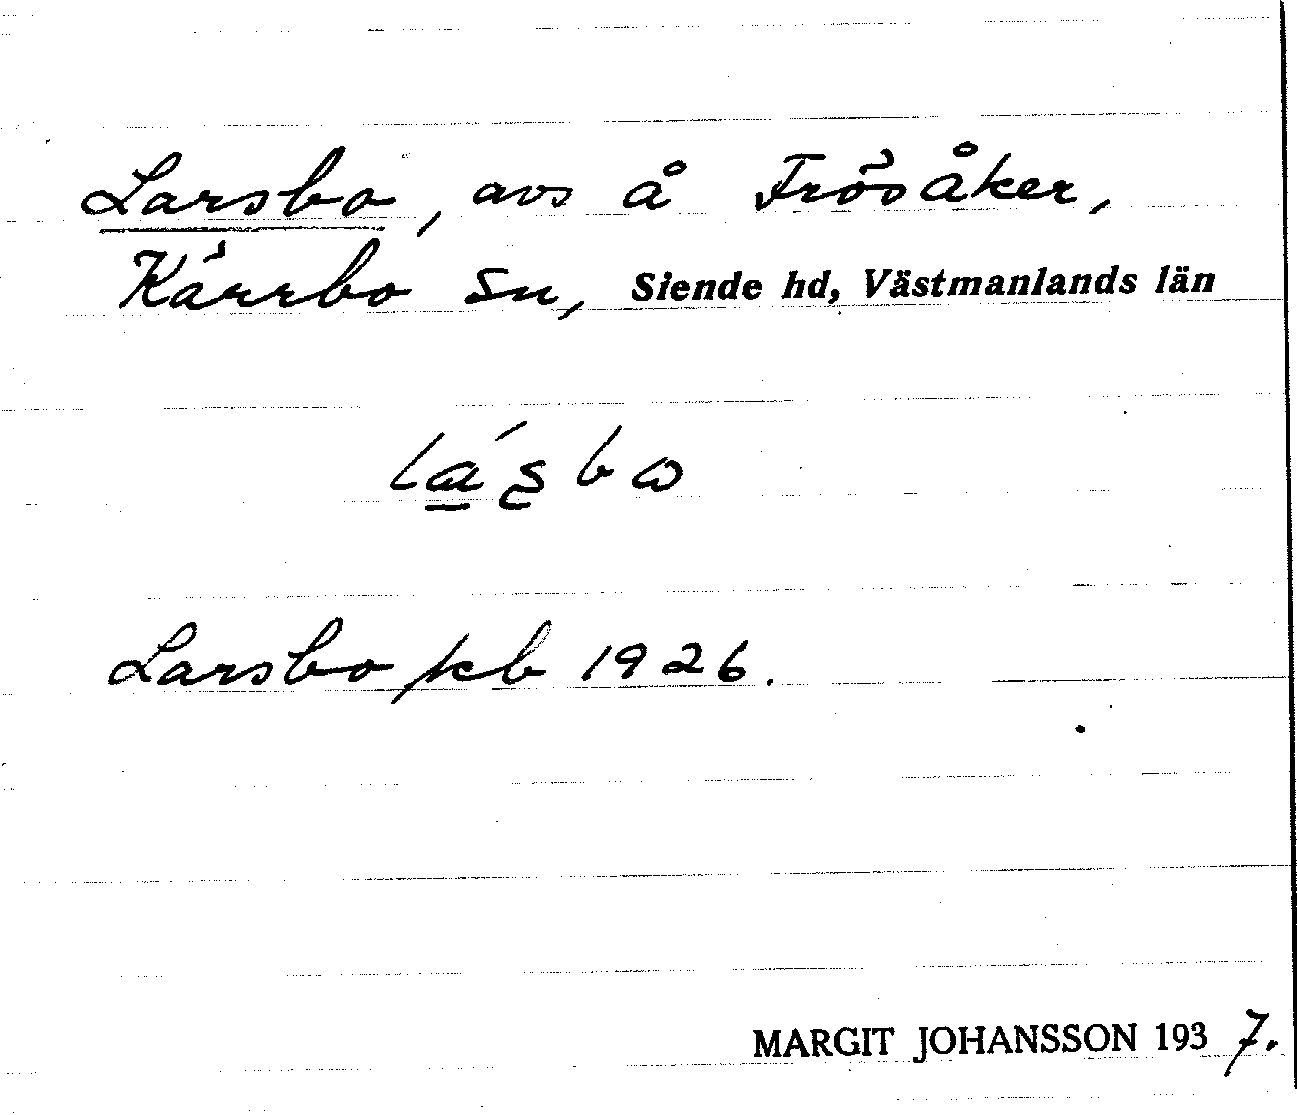 Larsbo, avs å Frösåker,
Kärrbo sn, Siende hd, Västmanlands län
Larsbo kb 1926.
MARGIT JOHANSSON 1937.